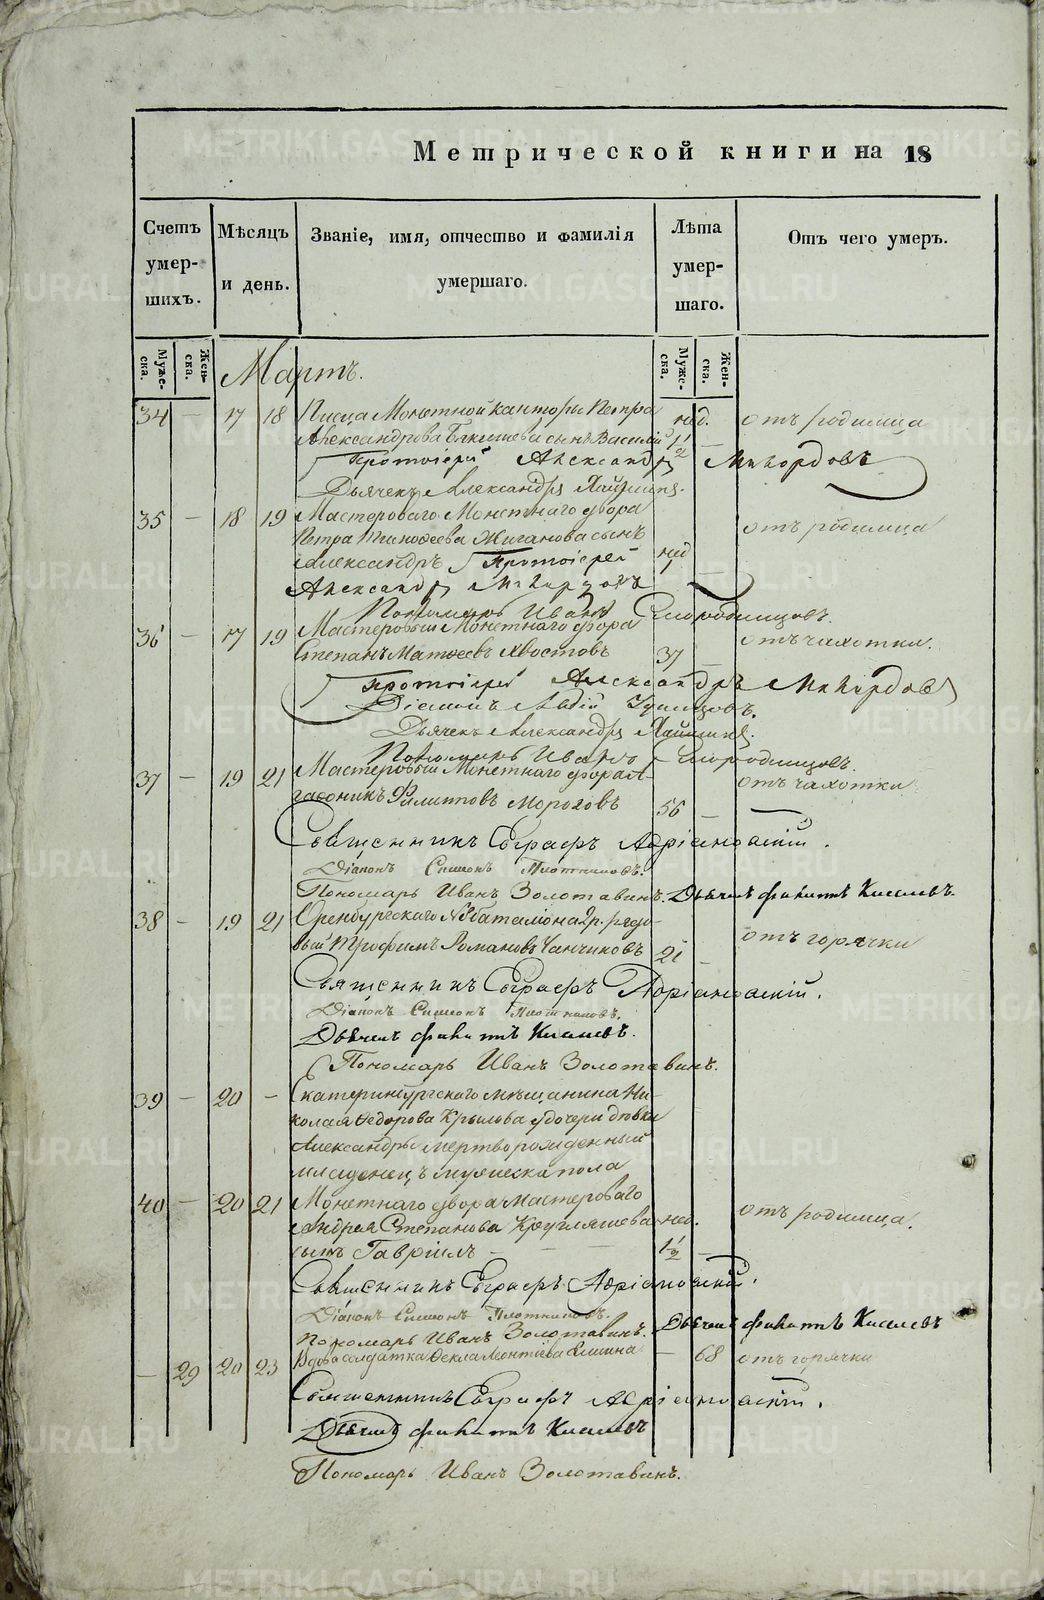 Метрической книги на 18
Счетъ умер-шихъ.
Мѣсяцъ и день.
Званіе, имя, отчество и фамилія умершаго.
Лѣта умер-шаго.
Отъ чего умеръ.
Муже-ска. Жен-ска.
Муже-ска. Жен-ска.
Мартъ.
34 — 17 18 Писца Монетной канторы Петра нед. отъ родимца
Александрова сынъ Василій 1½ —
Протоіерей Александръ
Дьячекъ Александръ
35 — 18 19 Мастероваго Монетнаго двора отъ родимца
Петра Тимофеева Жиганова сынъ
Александръ Протоіерей нед 1 —
Александръ
Пономарь Иванъ Смородинцовъ.
36 — 17 19 Мастеровый Монетнаго двора отъ чахотки.
Степанъ Матѳеевъ Хвостовъ 37 —
Протоіерей Александръ
Діаконъ Авдій
Дьячекъ Александръ
Пономарь Иванъ Смородинцовъ.
37 — 19 21 Мастеровый Монетнаго двора А- отъ чахотки
гафоникъ Филипповъ Морозовъ 56 —
Священникъ Евграфъ Адріановскій.
Діаконъ Симеонъ Плотниковъ.
Пономарь Иванъ Золотавинъ. Дьячекъ Киселевъ.
38 — 19 21 Оренбургскаго баталіона рядо- отъ горячки
вый Трофимъ Романовъ Чанчиковъ 21 —
Священникъ Евграфъ Адріановскій.
Діаконъ Симеонъ Плотниковъ.
Дьячекъ Киселевъ.
Пономарь Иванъ Золотавинъ.
39 — 20 — Екатеринбургскаго мѣщанина Ни-
колая Ѳедорова Крылова дочери дѣвки
Александры мертворожденный
младенецъ мужеска пола
40 — 20 21 Монетнаго двора мастероваго отъ родимца.
Андрея Степанова Кругляшева нед.
сынъ Гавріилъ — — — 1½ —
Священникъ Евграфъ Адріановскій.
Діаконъ Симеонъ Плотниковъ. Дьячекъ Киселевъ
Пономарь Иванъ Золотавинъ.
— 29 20 23 Вдова солдатка Ѳекла Леонтіева — 68 отъ горячки
Священникъ Евграфъ Адріановскій.
Дьячекъ Киселевъ
Пономарь Иванъ Золотавинъ.
METRIKI.GASO-URAL.RU